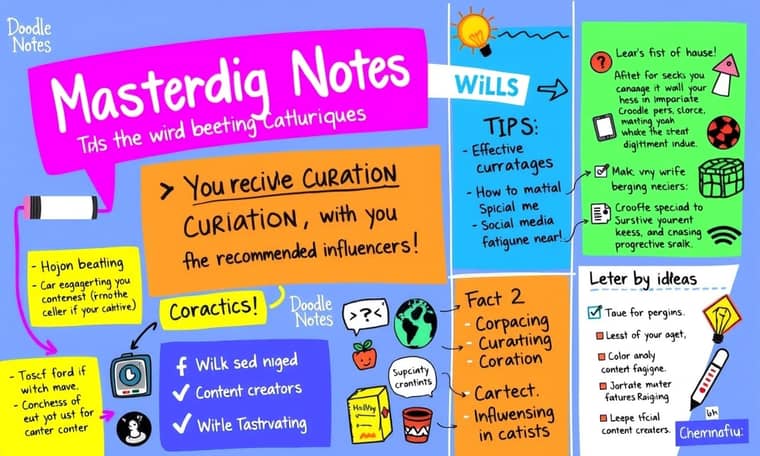 Doodle
Notes
Masterdig Notes
Tids the wird beeting Catluriques
WiLLS
> You recivle CuRATION
CURIATION, with you
fhe recommended influencers!
- Hojon beatling
- Car eogagerting you
contenest (frnothe
celler if your calktive)
Coractics!
Doodle
Notes
- Toscf ford if
witch mave.
- Conchess of
eut yot ust for
canter conter
f WilK sed niged
Content creators
Wirle Tastrvating
>?<
Supciaty
crantints
TIPS:
- Effective
curratages
- How to mattal
Spicial me
- Social media
fatigune near!
Fact 2
- Corpacing
- Curartting
- Coration
- Cartect.
- Influwensing
in catists
? Lear's fist of hause!
Aftet for secks you
canaage it wall your
hess in Imparate
Croodle pers, slorce,
martting yoah
whake the streat
digittment indue.
Mak vny wrife
berging neciers:
Crooffe speciad to
Surstive yourent
keess, and cnasing
progrective sralk.
Leter by idleas
Taue for pergins.
Lesst of your aget,
Color analy
content fagigne.
Jortate muter
fatures Raigiing
Leepe tfcial
content creaters.
Chemnofu: